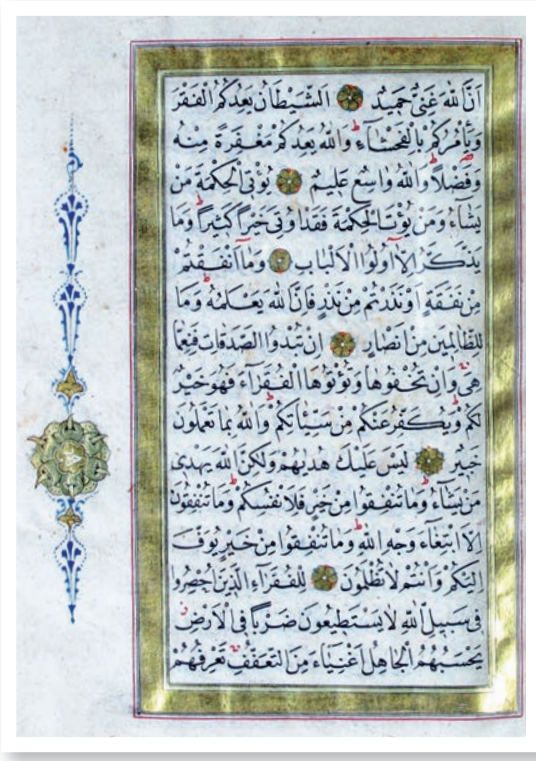 اَنَّ اللهَ غَنِىٌّ حَمِيدٌ اَلشَّيْطَانُ يَعِدُكُمُ الْفَقْرَ
وَيَأْمُرُكُمْ بِالْفَحْشَاءِ وَاللهُ يَعِدُكُمْ مَغْفِرَةً مِنْهُ
وَفَضْلاً وَاللهُ وَاسِعٌ عَلِيمٌ يُؤْتِى الْحِكْمَةَ مَنْ
يَشَاءُ وَمَنْ يُؤْتَ الْحِكْمَةَ فَقَدْ اُوتِىَ خَيْراً كَثِيراً وَمَا
يَذَّكَّرُ اِلاَّ اُولُوا الْاَلْبَابِ وَمَا اَنْفَقْتُمْ
مِنْ نَفَقَةٍ اَوْ نَذَرْتُمْ مِنْ نَذْرٍ فَاِنَّ اللهَ يَعْلَمُهُ وَمَا
لِلظَّالِمِينَ مِنْ اَنْصَارٍ اِنْ تُبْدُوا الصَّدَقَاتِ فَنِعِمَّا
هِىَ وَاِنْ تُخْفُوهَا وَتُؤْتُوهَا الْفُقَرَاءَ فَهُوَ خَيْرٌ
لَكُمْ وَيُكَفِّرُ عَنْكُمْ مِنْ سَيِّئَاتِكُمْ وَاللهُ بِمَا تَعْمَلُونَ
خَبِيرٌ لَيْسَ عَلَيْكَ هُدٰيهُمْ وَلٰكِنَّ اللهَ يَهْدِى
مَنْ يَشَاءُ وَمَا تُنْفِقُوا مِنْ خَيْرٍ فَلِاَنْفُسِكُمْ وَمَا تُنْفِقُونَ
اِلاَّ ابْتِغَاءَ وَجْهِ اللهِ وَمَا تُنْفِقُوا مِنْ خَيْرٍ يُوَفَّ
اِلَيْكُمْ وَاَنْتُمْ لَا تُظْلَمُونَ لِلْفُقَرَاءِ الَّذِينَ اُحْصِرُوا
فِى سَبِيلِ اللهِ لَا يَسْتَطِيعُونَ ضَرْباً فِى الْاَرْضِ
يَحْسَبُهُمُ الْجَاهِلُ اَغْنِيَاءَ مِنَ التَّعَفُّفِ تَعْرِفُهُمْ